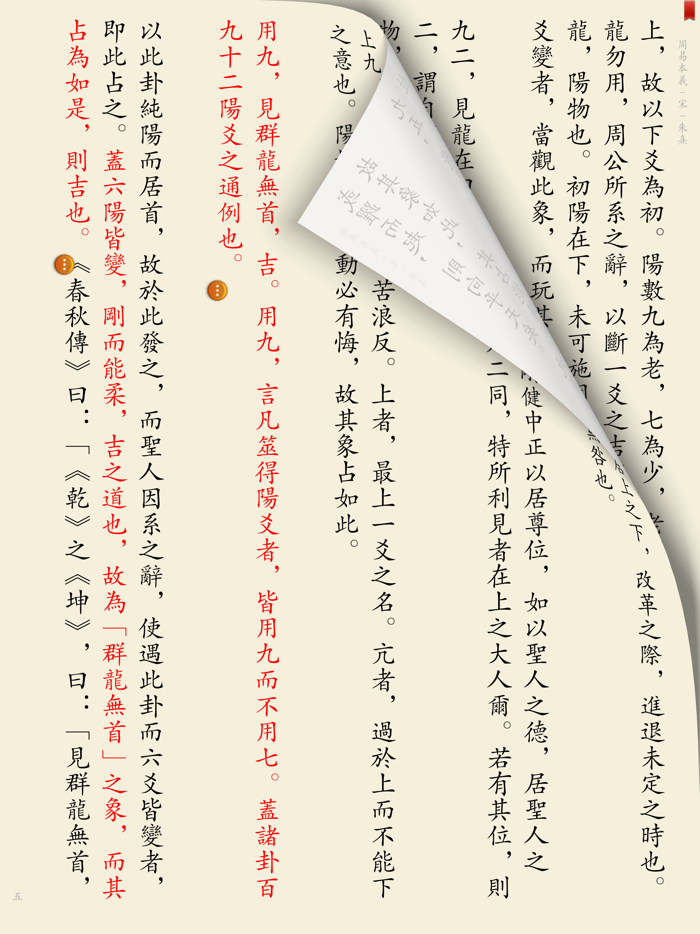 周易本義－宋－朱熹
上，故以下爻為初。陽數九為老，七為少，
龍勿用，周公所系之辭，以斷一爻之吉
龍，陽物也。初陽在下，未可施用
爻變者，當觀此象，而玩其
九二，見龍在
二，謂
物，
上之下，改革之際，進退未定之時也。
咎也。
健中正以居尊位，如以聖人之德，居聖人之
二同，特所利見者在上之大人爾。若有其位，則
上九
苦浪反。上者，最上一爻之名。亢者，過於上而不能下
之意也。陽
動必有悔，故其象占如此。
用九，見群龍無首，吉。用九，言凡筮得陽爻者，皆用九而不用七。蓋諸卦百
九十二陽爻之通例也。
以此卦純陽而居首，故於此發之，而聖人因系之辭，使遇此卦而六爻皆變者，
即此占之。蓋六陽皆變，剛而能柔，吉之道也，故為「群龍無首」之象，而其
占為如是，則吉也。《春秋傳》曰：「《乾》之《坤》，曰：「見群龍無首，
五